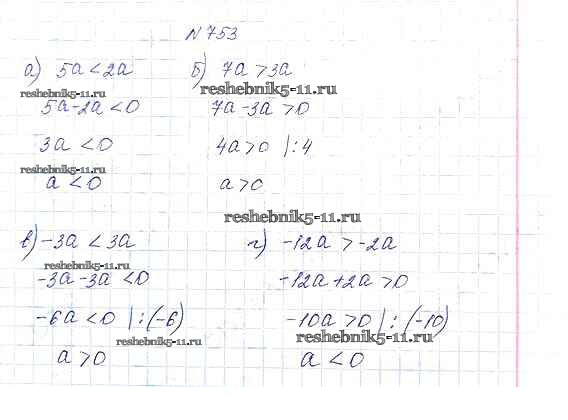 № 753
а) 5a < 2a б) 7a > 3a
reshebnik5-11.ru reshebnik5-11.ru
5a - 2a < 0 7a - 3a > 0
3a < 0 4a > 0 | : 4
reshebnik5-11.ru
a < 0 a > 0
reshebnik5-11.ru
в) -3a < 3a г) -12a > -2a
reshebnik5-11.ru
-3a - 3a < 0 -12a + 2a > 0
-6a < 0 | : (-6) -10a > 0 | : (-10)
reshebnik5-11.ru reshebnik5-11.ru
a > 0 a < 0